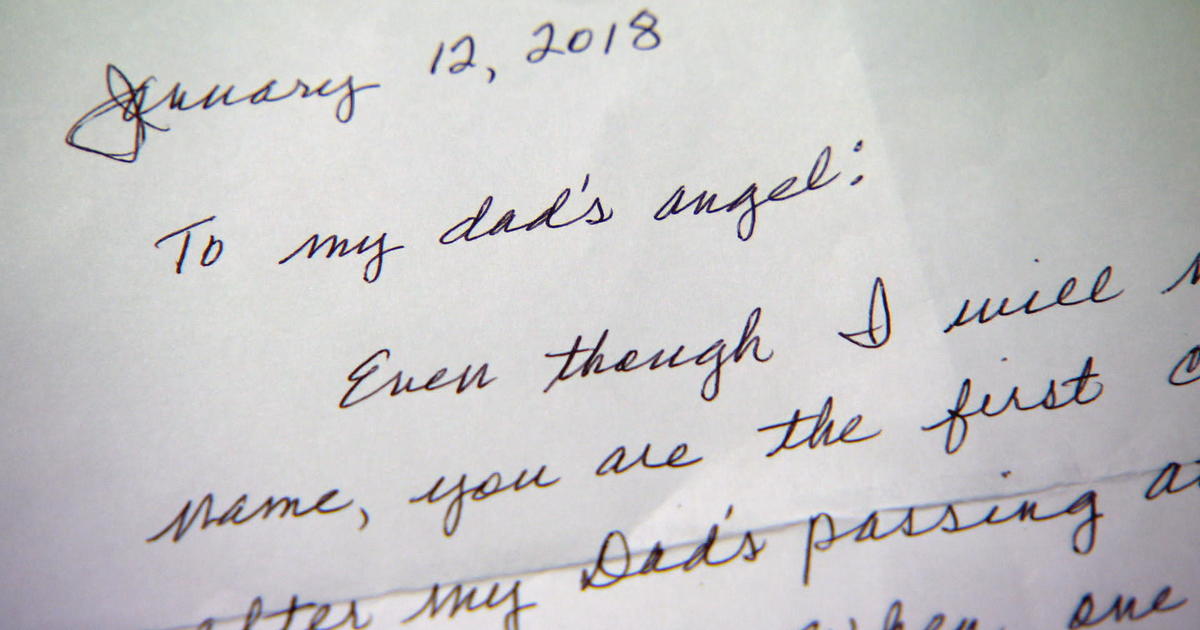 January 12, 2018
To my dad's angel:
Even though I will
name, you are the first
after my Dad's passing
when one